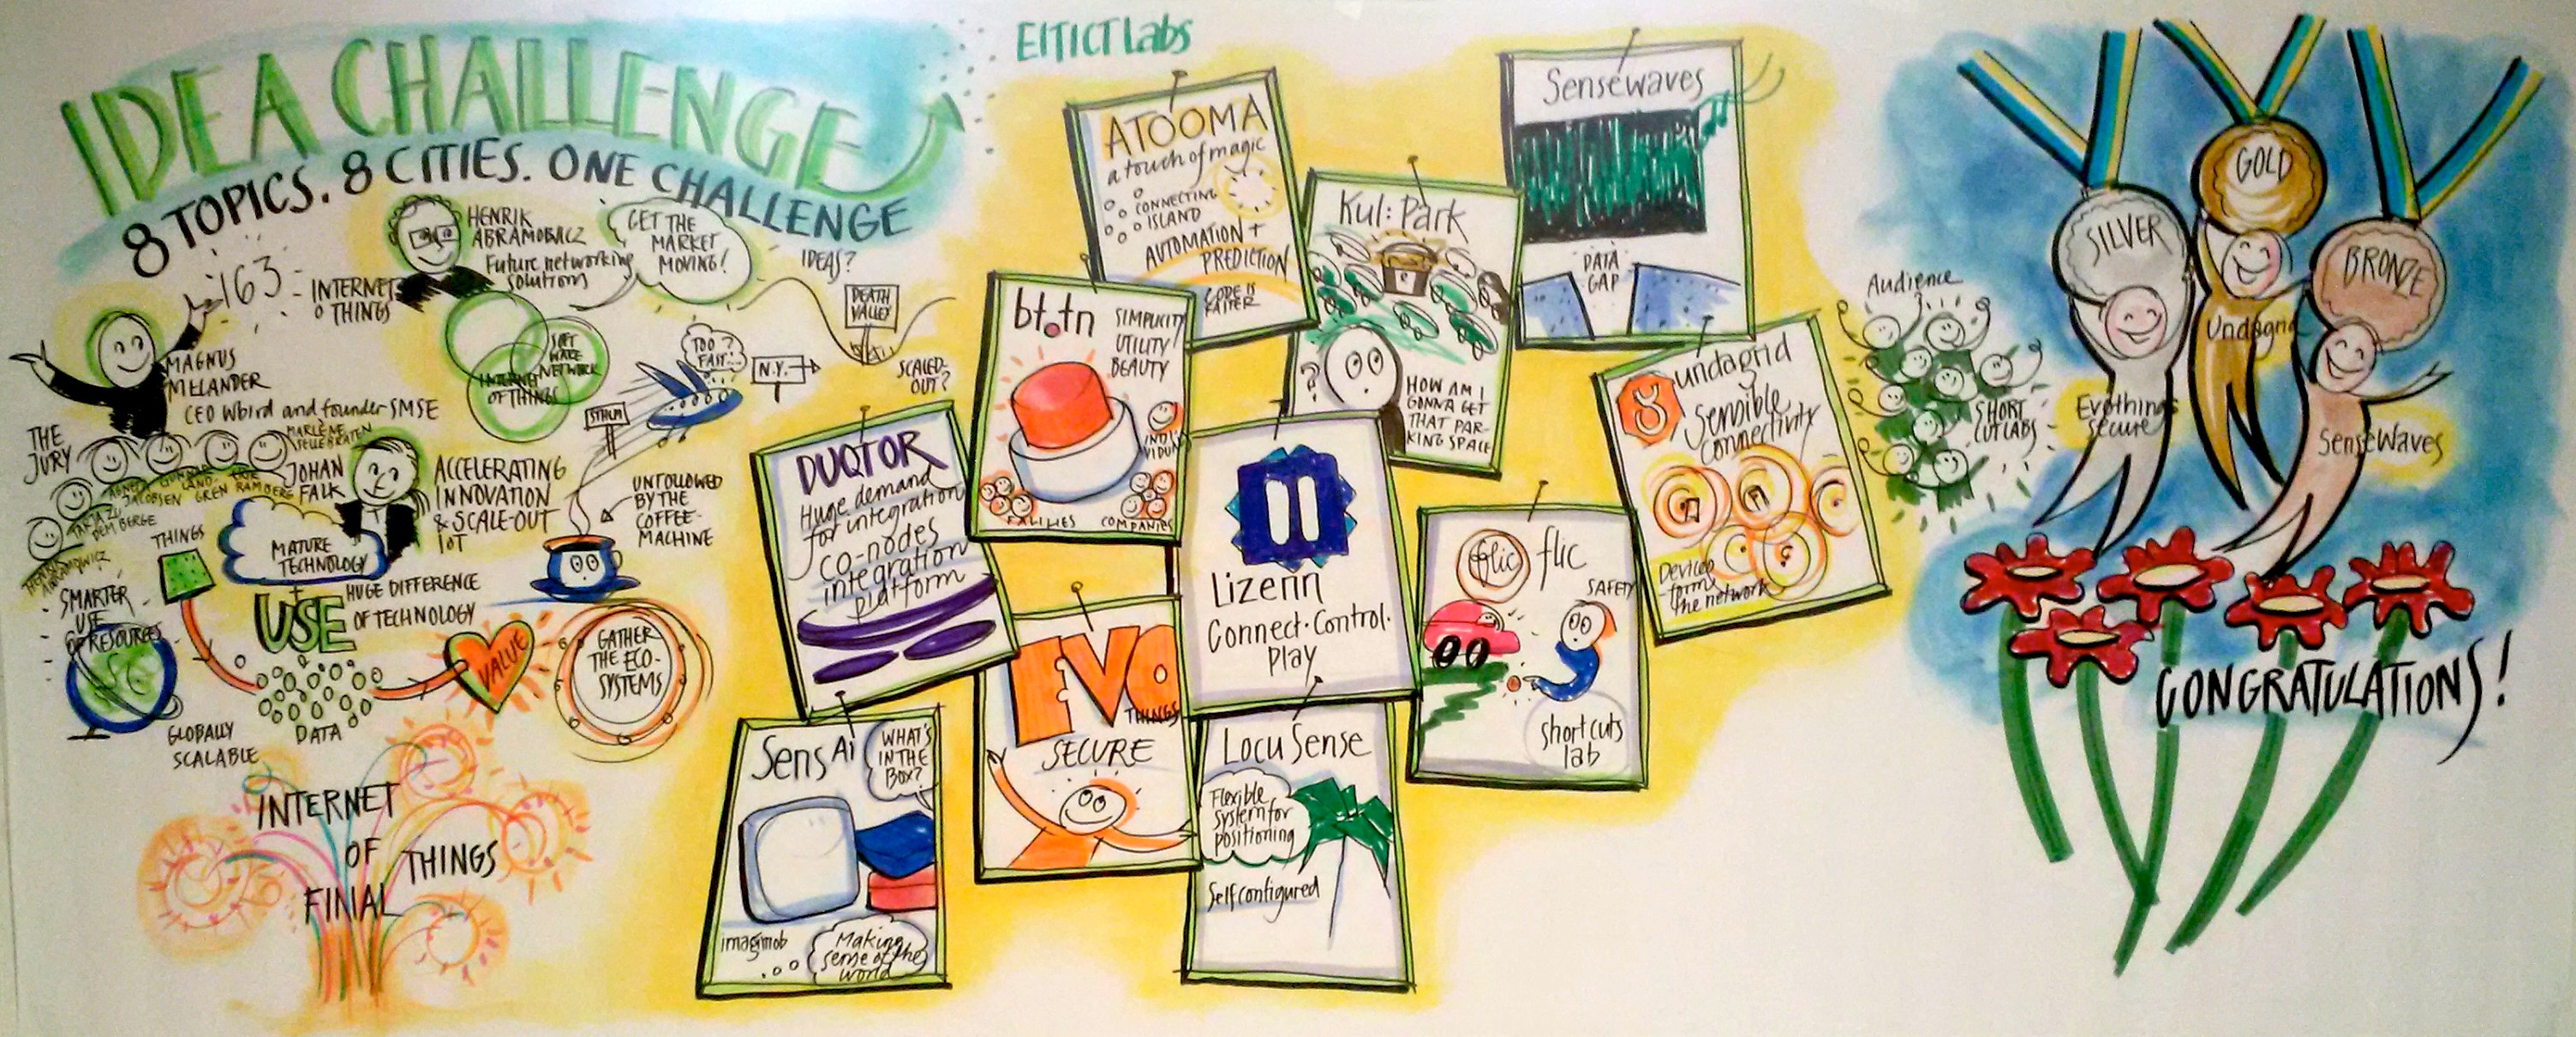 IDEA CHALLENGE
8 TOPICS. 8 CITIES. ONE CHALLENGE
163
INTERNET
O THINGS
HENRIK
ABRAMOWICZ
Future networking
solutions
GET THE
MARKET
MOVING!
IDEAS?
DEATH
VALLEY
SCALED-
OUT?
SOFT
WARE
NETWORK
INTERNET
OF THINGS
TOO?
FAST...
N.Y.
STHLM
MAGNUS
MELANDER
CEO Wbird and founder SMSE
THE
JURY
JOHAN
FALK
ACCELERATING
INNOVATION
& SCALE-OUT
IOT
UNFOLLOWED
BY THE
COFFEE-
MACHINE
THINGS
MATURE
TECHNOLOGY
+
USE
HUGE DIFFERENCE
OF TECHNOLOGY
SMARTER
USE
OF RESOURCES
GLOBALLY
SCALABLE
DATA
VALUE
GATHER
THE ECO-
SYSTEMS
INTERNET
OF THINGS
FINAL
EITICT Labs
ATOOMA
a touch of magic
CONNECTING
ISLAND
AUTOMATION +
PREDICTION
CODE IS
FASTER
Kul: Park
HOW AM I
GONNA GET
THAT PAR-
KING SPACE
?
Sensewaves
DATA
GAP
bt.tn
SIMPLICITY
UTILITY
BEAUTY
INDI
VIDUAL
FAMILIES
COMPANIES
undagrid
sensible
connectivity
Devices
form
the network
DUQTOR
Huge demand
for integration
co-nodes
integration
platform
Lizenn
Connect·Control·
play
flic flic
SAFETY
shortcuts
lab
EVO
THINGS
SECURE
SensAi
WHAT'S
IN THE
BOX?
imagimob
Making
sense of the
world
LocuSense
Flexible
system for
positioning
Selfconfigured
Audience
SHORT
CUT LABS
SILVER
GOLD
BRONZE
Evothings
secure
Undagrid
SenseWaves
CONGRATULATIONS!